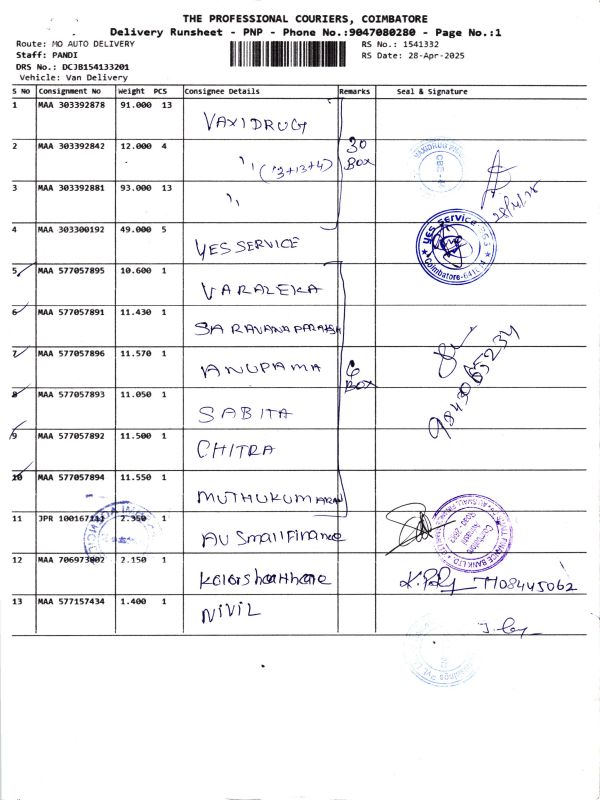 THE PROFESSIONAL COURIERS, COIMBATORE
Delivery Runsheet - PNP - Phone No.:9047080280 - Page No.:1
Route: MO AUTO DELIVERY
Staff: PANDI
DRS No.: DCJB154133201
Vehicle: Van Delivery
RS No.: 1541332
RS Date: 28-Apr-2025
S No Consignment No Weight PCS Consignee Details Remarks Seal & Signature
1 MAA 303392878 91.000 13 VAXIDRUG
2 MAA 303392842 12.000 4 " (13+13+4) 30 BOX
3 MAA 303392881 93.000 13 "
28/4/25
4 MAA 303300192 49.000 5 YES SERVICE
YES Service
Coimbatore-641
5 MAA 577057895 10.600 1 VARALEKA
6 MAA 577057891 11.430 1 SARAVANA PRAKASH
7 MAA 577057896 11.570 1 ANUPAMA 6 BOX
9843065234
8 MAA 577057893 11.050 1 SABITA
9 MAA 577057892 11.500 1 CHITRA
10 MAA 577057894 11.550 1 MUTHUKUMARAN
11 JPR 2.350 1 AU Small Finance
12 MAA 706973802 2.150 1 7708445062
13 MAA 577157434 1.400 1 NIVIL